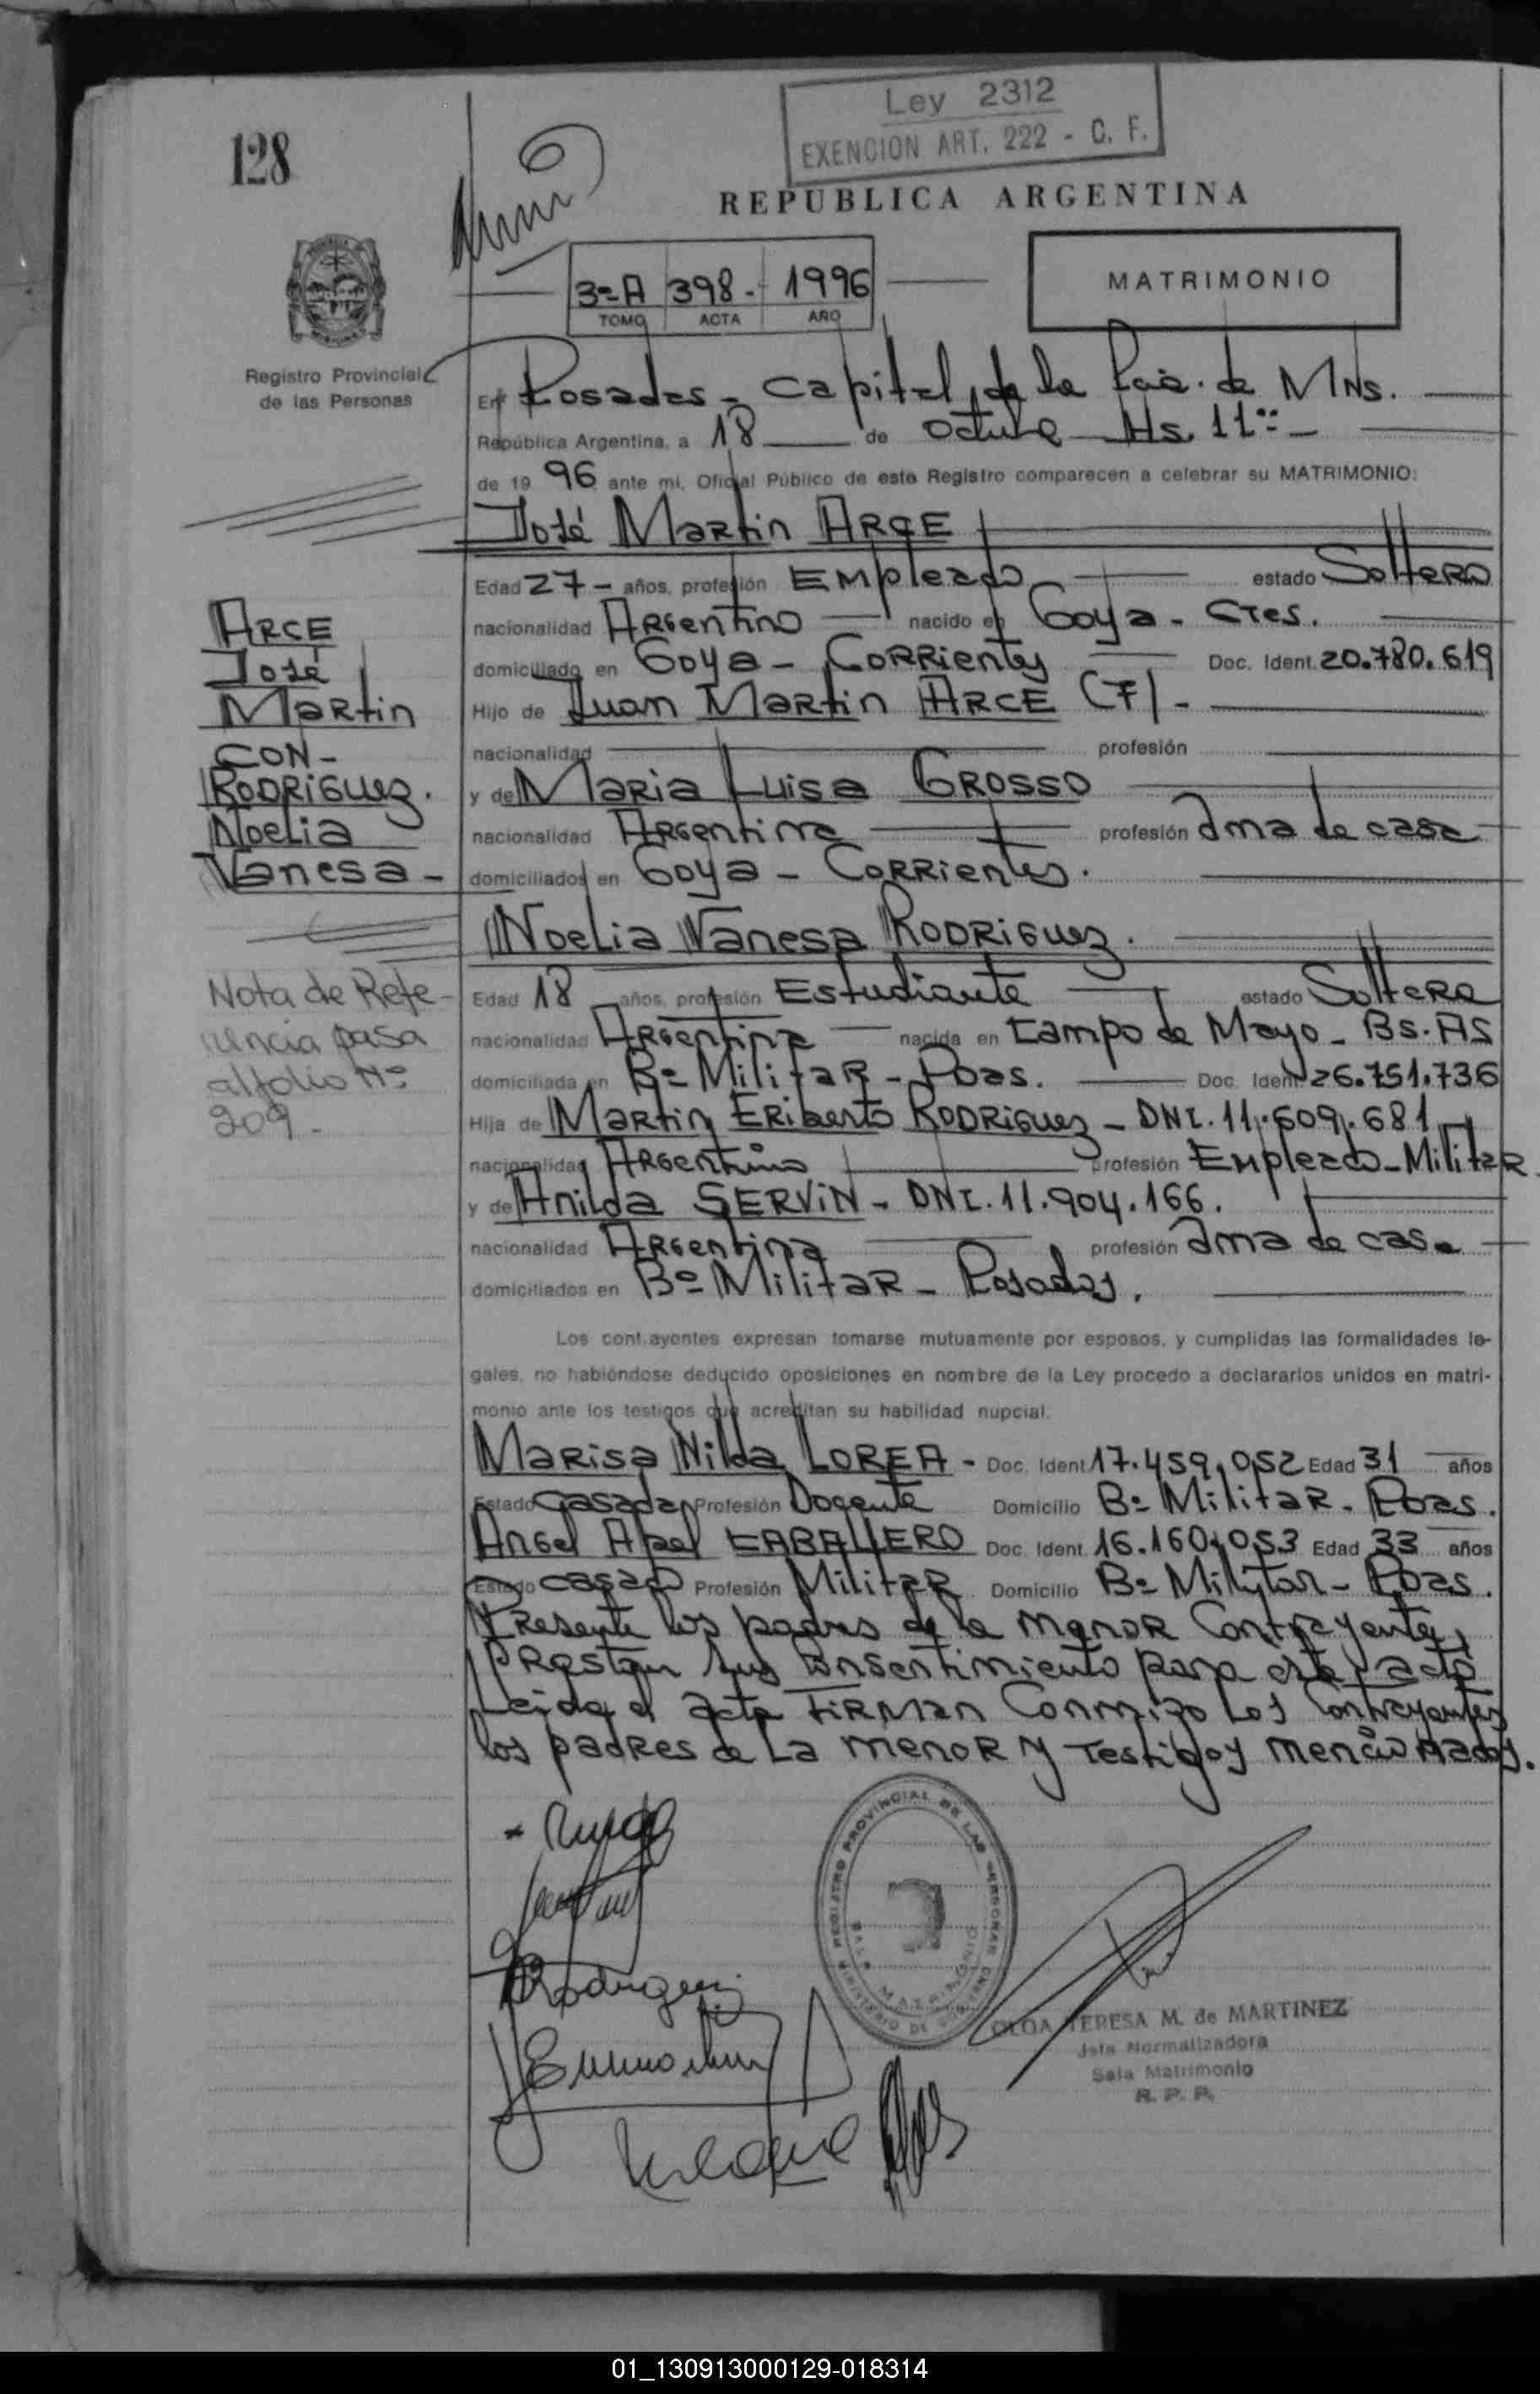 Ley 2312
EXENCION ART. 222 - C. F.
128
REPUBLICA ARGENTINA
3º-A 398.- 1996
TOMO ACTA AÑO
MATRIMONIO
Registro Provincial
de las Personas
En Posadas - Capital de la Pcia. de MNs.
República Argentina, a 18 de octubre Hs. 11:-
de 19 96 ante mi, Oficial Público de este Registro comparecen a celebrar su MATRIMONIO:
José Martin ARCE
Edad 27 - años, profesión Empleado estado Soltero
nacionalidad Argentino nacido en Goya - Ctes.
domiciliado en Goya - Corrientes Doc. Ident. 20.780.619
Hijo de Juan Martin ARCE (F) -
nacionalidad profesión
y de Maria Luisa GROSSO
nacionalidad Argentina profesión Ama de casa
domiciliados en Goya - Corrientes.
ARCE
José
Martin
CON -
RODRIGUEZ.
Noelia
Vanesa -
Noelia Vanesa RODRIGUEZ.
Edad 18 años, profesión Estudiante estado Soltera
nacionalidad Argentina nacida en Campo de Mayo - Bs. AS
domiciliada en Bº Militar - Pdas. Doc. Ident. 26.751.736
Hija de Martin Eriberto RODRIGUEZ - DNI. 11.609.681
nacionalidad Argentino profesión Empleado - Militar
y de Anilda SERVIN - DNI. 11.904.166.
nacionalidad Argentina profesión Ama de casa
domiciliados en Bº Militar - Posadas.
Nota de Refe-
rencia pasa
al folio Nº
209.-
Los contrayentes expresan tomarse mutuamente por esposos, y cumplidas las formalidades le-
gales, no habiéndose deducido oposiciones en nombre de la Ley procedo a declararlos unidos en matri-
monio ante los testigos que acreditan su habilidad nupcial.
Marisa Nilda LOREA - Doc. Ident 17.459.052 Edad 31 años
Estado Casada Profesión Docente Domicilio Bº Militar - Pdas.
Angel Abel CABALLERO Doc. Ident. 16.160.053 Edad 33 años
Estado casado Profesión Militar Domicilio Bº Militar - Pdas.
Presente los padres de la menor Contrayente,
prestan sus Consentimiento para este acto
Leida el acta firman Conmigo los Contrayentes
los padres de La menor y Testigos mencionados.
REGISTRO PROVINCIAL DE LAS PERSONAS
SALA MATRIMONIO
MINISTERIO DE GOBIERNO
Rodriguez
OLGA TERESA M. de MARTINEZ
Jefa Normalizadora
Sala Matrimonio
R. P. P.
01_130913000129-018314